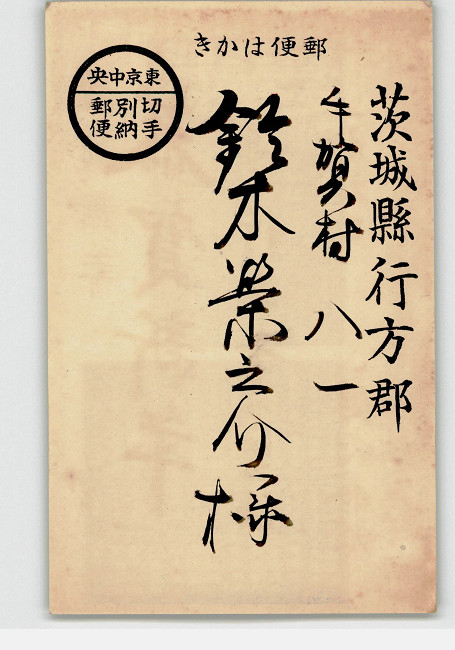 郵便はかき
東京中央
切手
別納
郵便
茨城縣行方郡
手賀村 八一
鈴木榮之介様